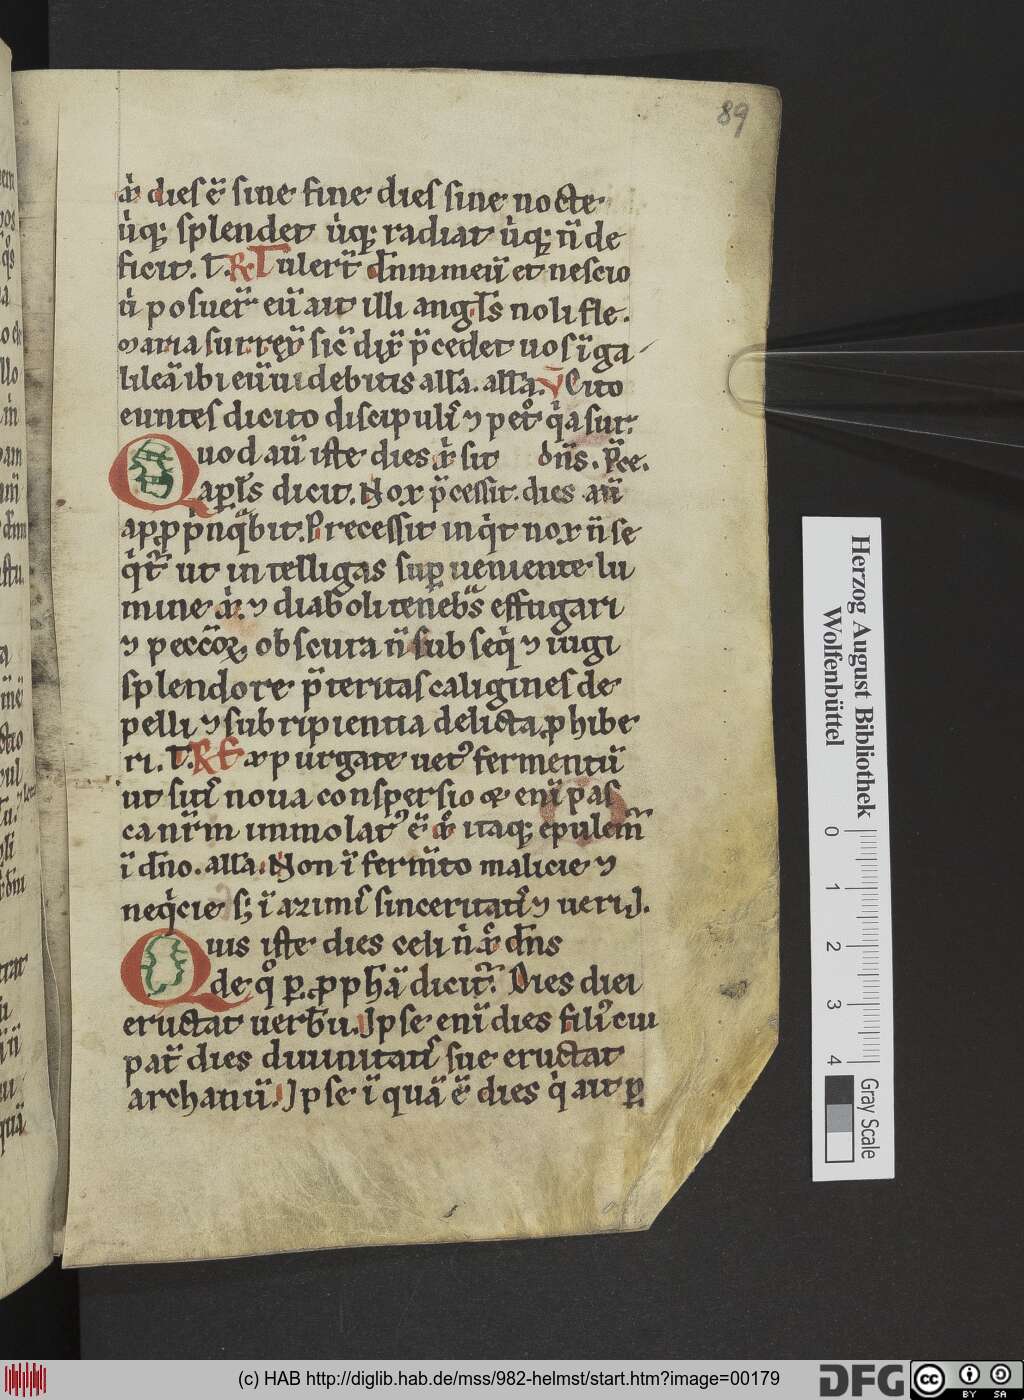 89
xp̄ dies ē sine fine dies sine nocte
ubiq; splendet ubiq; radiat ubiq; n̄ de
ficit. T. R Tulerūt dnm meū et nescio
ubi posuer̄ eū ait illi angl̄s noli fle.
maria surrex̄ sic̄ dix̄ p̄cedet uos ī ga
lileā ibi eū uidebitis all̄a. all̄a. V Cito
euntes dicite discipulis ⁊ petro q̇a sur.
Quod aū iste dies xp̄c sit dn̄s. p̄ce.
apl̄s dicit. Nox p̄cessit. dies aū
appropinq̄bit. Precessit inq̇t nox n̄ se
q̇t̄ ut intelligas superueniente lu
mine xp̄i ⁊ diaboli tenebᵃs effugari
⁊ peccōꝝ obscura n̄ subseq̇ ⁊ iugi
splendore p̄teritas caligines de
pelli ⁊ subripientia delicta ꝓhibe
ri. T. R Expurgate uet᷒ fermentū
ut sitis noua conspersio enī pas
ca nr̄m immolat᷒ ē xp̄c itaq; epulem̄
ī dn̄o. all̄a. Non ī ferm̄to malicie ⁊
neq̇cie s; ī azimis sinceritatis ⁊ ueri
Quis iste dies celi n̄ xp̄c dn̄s
de qͦ ꝑ ꝓphā dicit̄. Dies diei
eructat uerbū. Ipse enī dies fili᷒ cui
pat̄ dies diuinitatis sue eructat
archanū. Ipse ī quā ē dies q̇ ait ꝑ
Herzog August Bibliothek
Wolfenbüttel
0 1 2 3 4
Gray Scale
(c) HAB http://diglib.hab.de/mss/982-helmst/start.htm?image=00179
DFG
cc BY SA